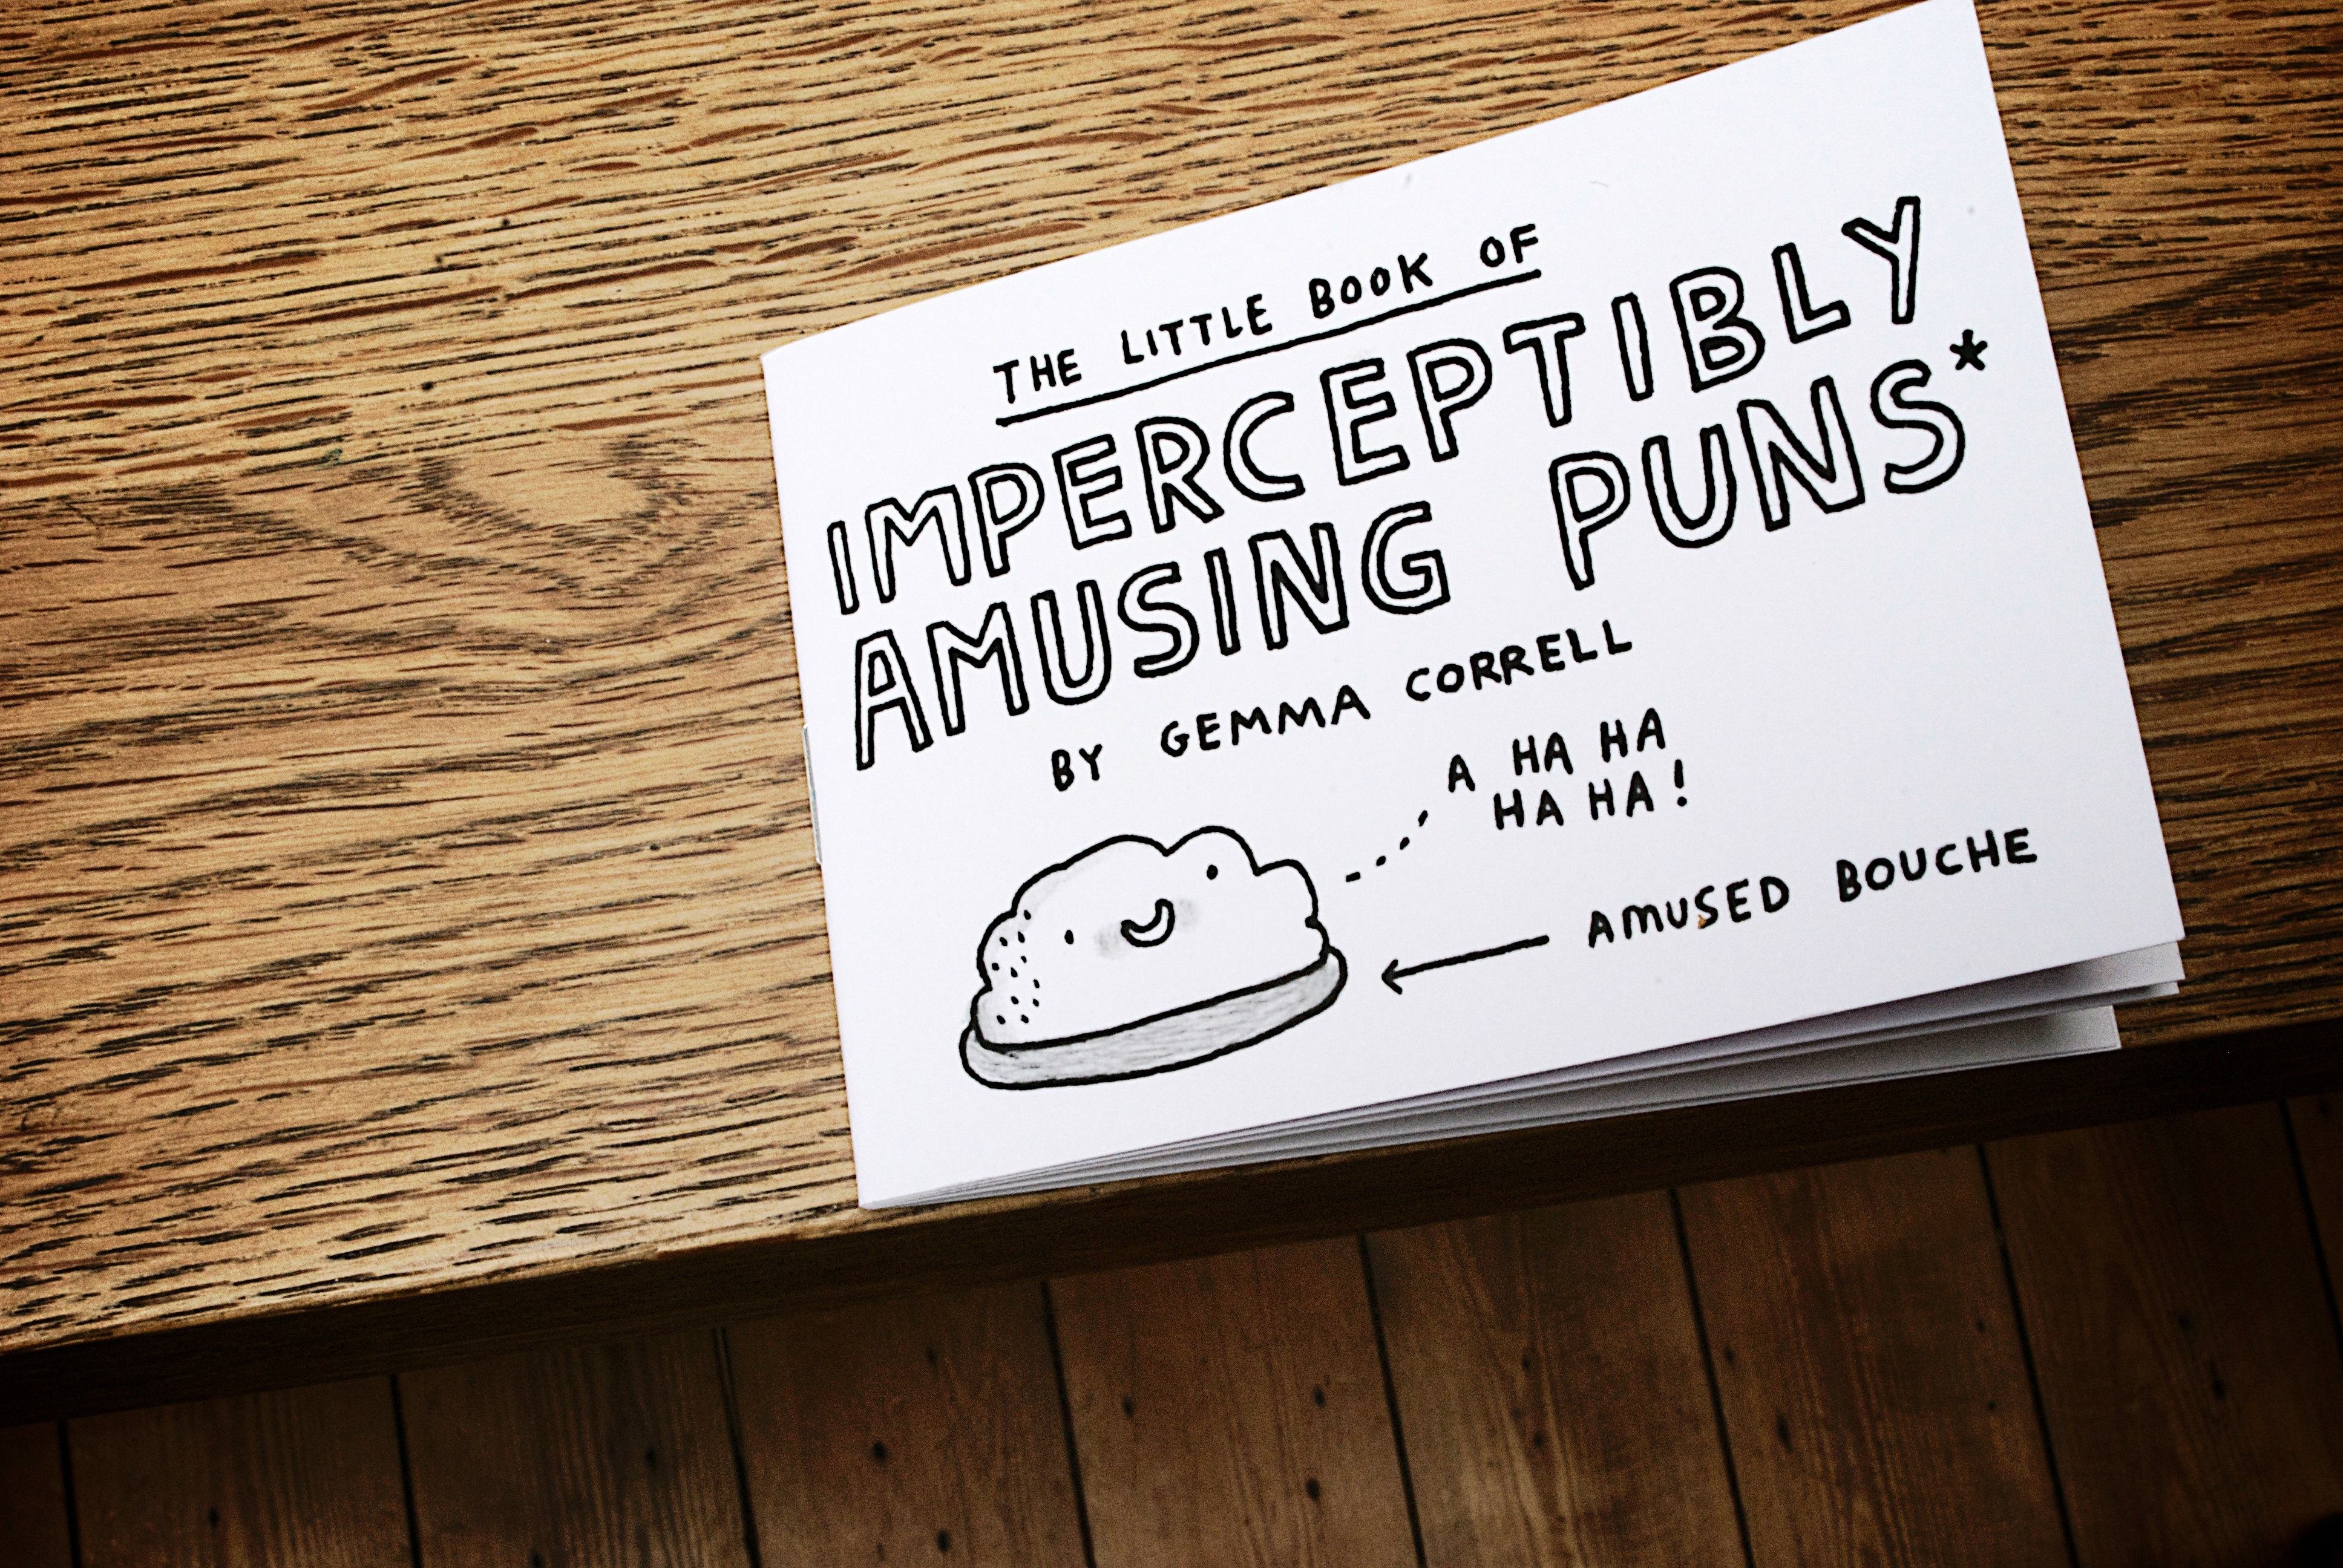 THE LITTLE BOOK OF
IMPERCEPTIBLY
AMUSING PUNS*
BY GEMMA CORRELL
A HA HA
HA HA!
AMUSED BOUCHE